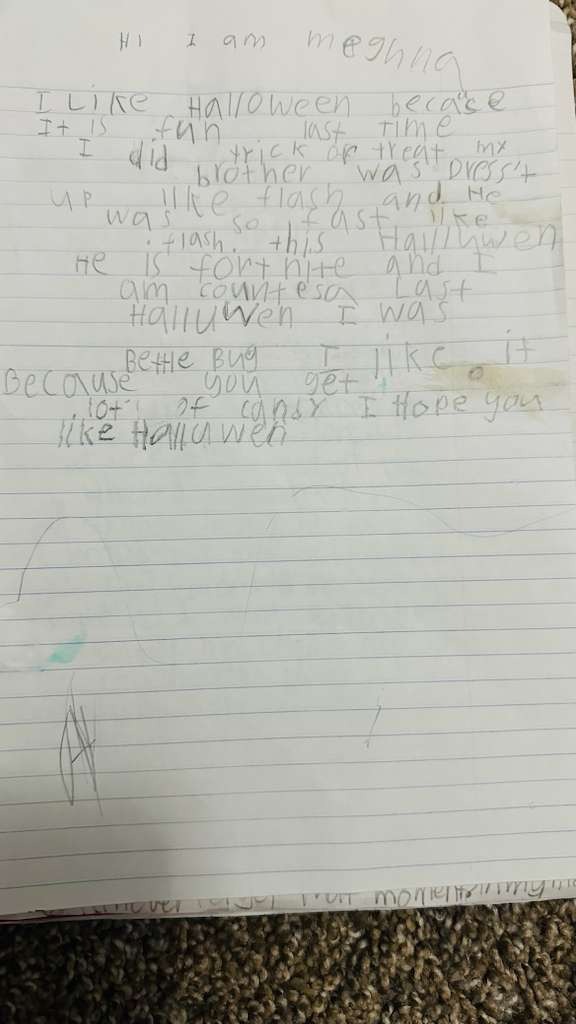 HI I am meghna
I Like Halloween becase
It is fun last time
I did trick or treat my
brother was Dress't
up like flash and He
was so fast like
flash. this Hallluwen
He is fortnite and I
am countesa Last
Halluwen I was
Bettle Bug I like it
Because you get
lot of candy I Hope you
like Halluwen